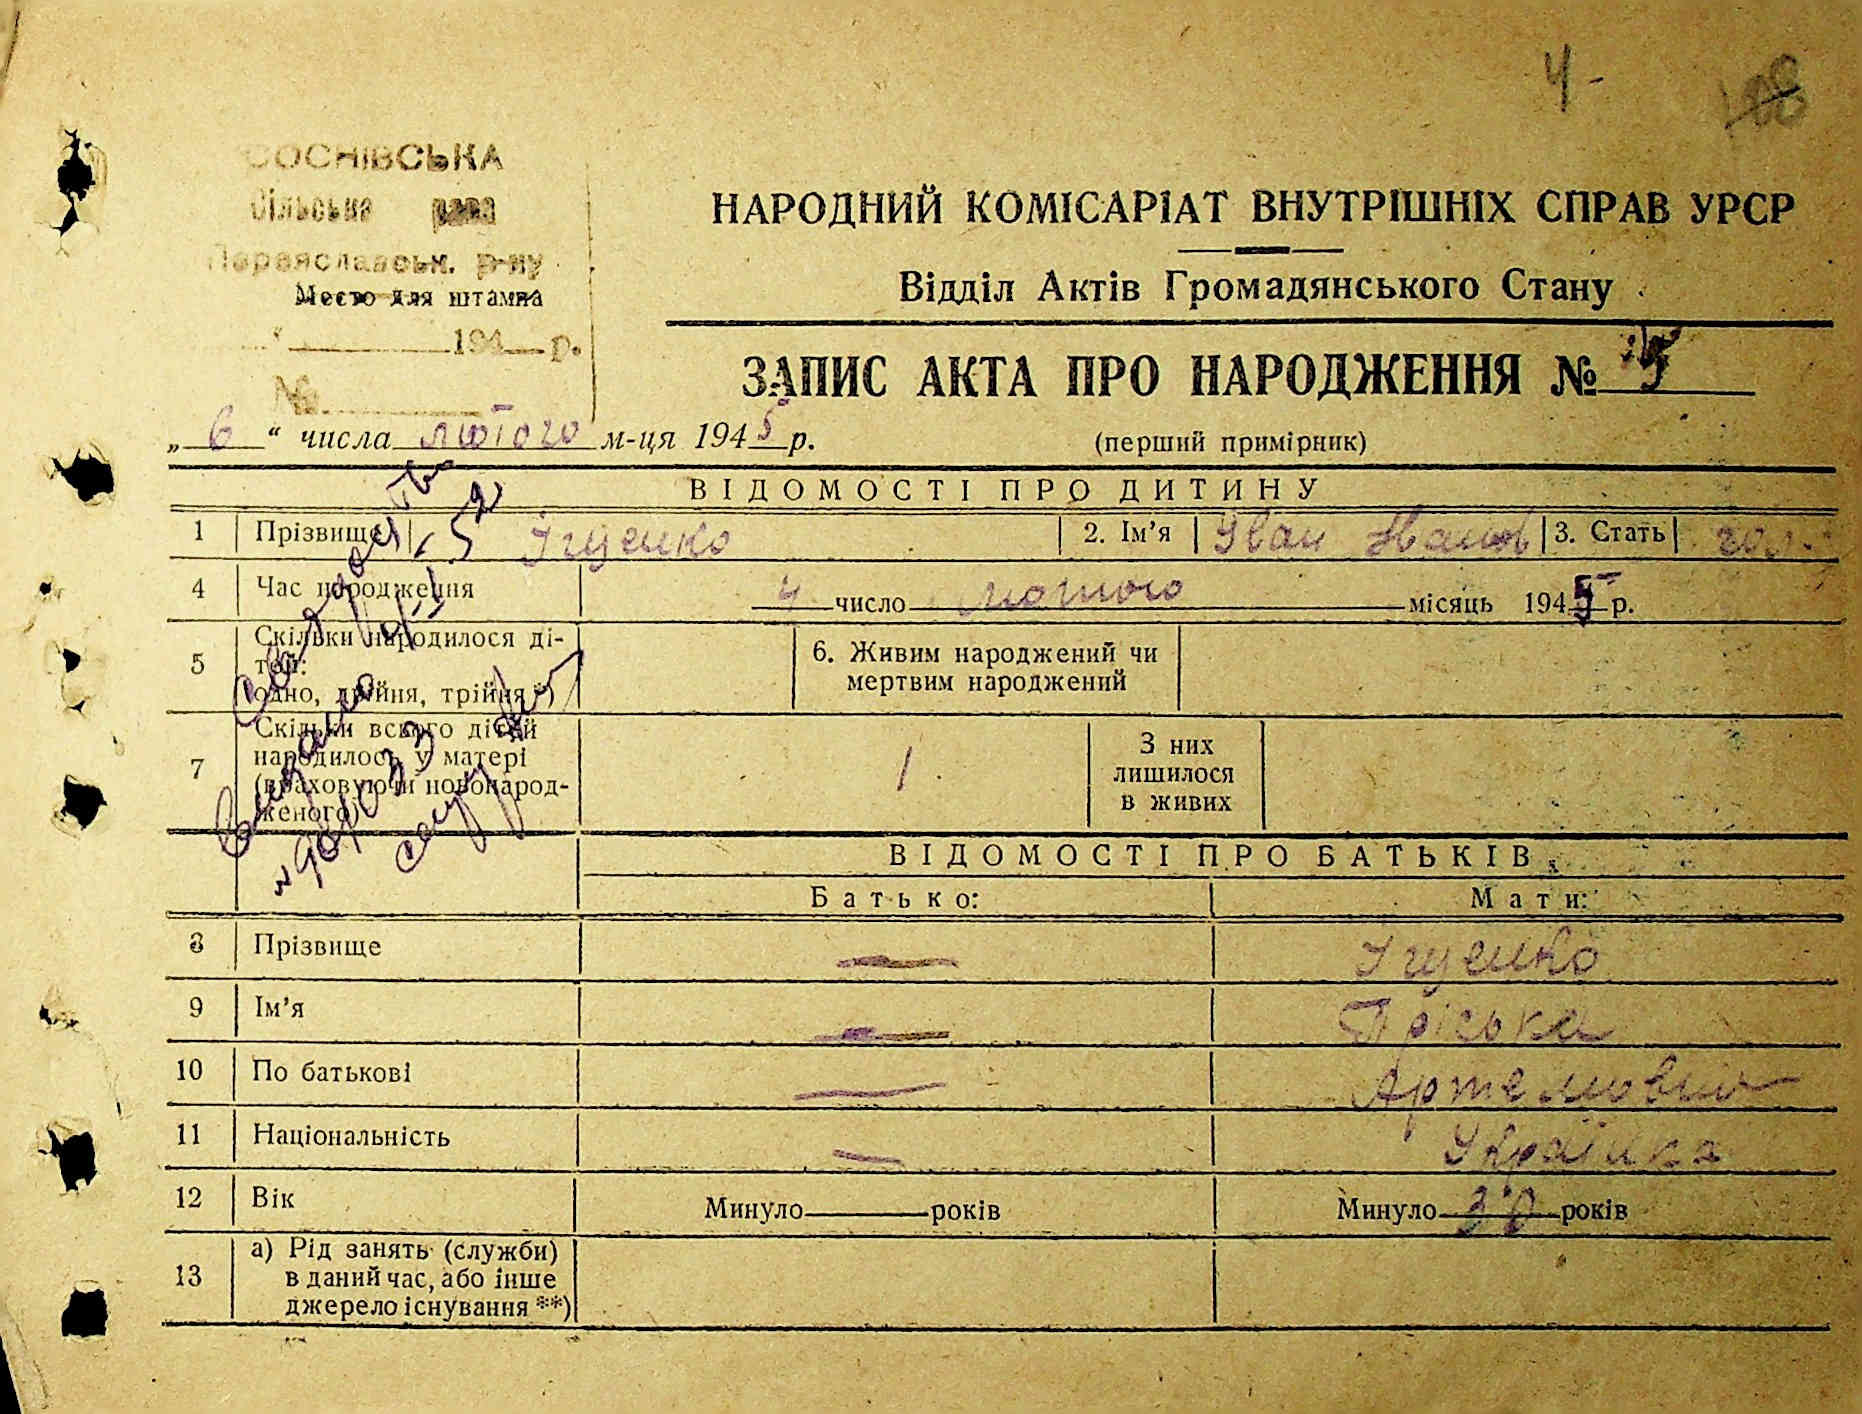 4-
108
СОСНІВСЬКА
сільська рада
Переяславськ. р-ну
Место для штампа
" 194 р.
№
НАРОДНИЙ КОМІСАРІАТ ВНУТРІШНІХ СПРАВ УРСР
Відділ Актів Громадянського Стану
ЗАПИС АКТА ПРО НАРОДЖЕННЯ № 5
„ 6 “ числа лютого м-ця 1945 р.
(перший примірник)
ВІДОМОСТІ ПРО ДИТИНУ
1 Прізвище Ігценко 2. Ім’я Іван Іванов 3. Стать чол.
4 Час народження 4 число лютого місяць 1945 р.
5 Скільки народилося ді-
тей:
одно, двійня, трійня *)
6. Живим народжений чи
мертвим народжений
7 Скільки всього дітей
народилось у матері
(враховуючи новонарод-
женого)
1
З них
лишилося
в живих
ВІДОМОСТІ ПРО БАТЬКІВ
Батько: Мати:
8 Прізвище — Ігценко
9 Ім’я — Пріська
10 По батькові — Артемовна
11 Національність — Українка
12 Вік Минуло — років Минуло 30 років
13 а) Рід занять (служби)
в даний час, або інше
джерело існування **)